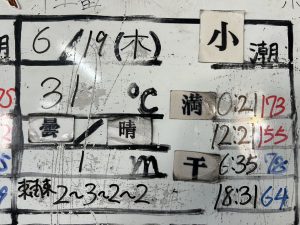 潮 6/19(木) 小潮
31℃ 満 0:21 173
曇/晴 12:21 155
1m 干 6:35 78
2~3~2~2 18:31 64